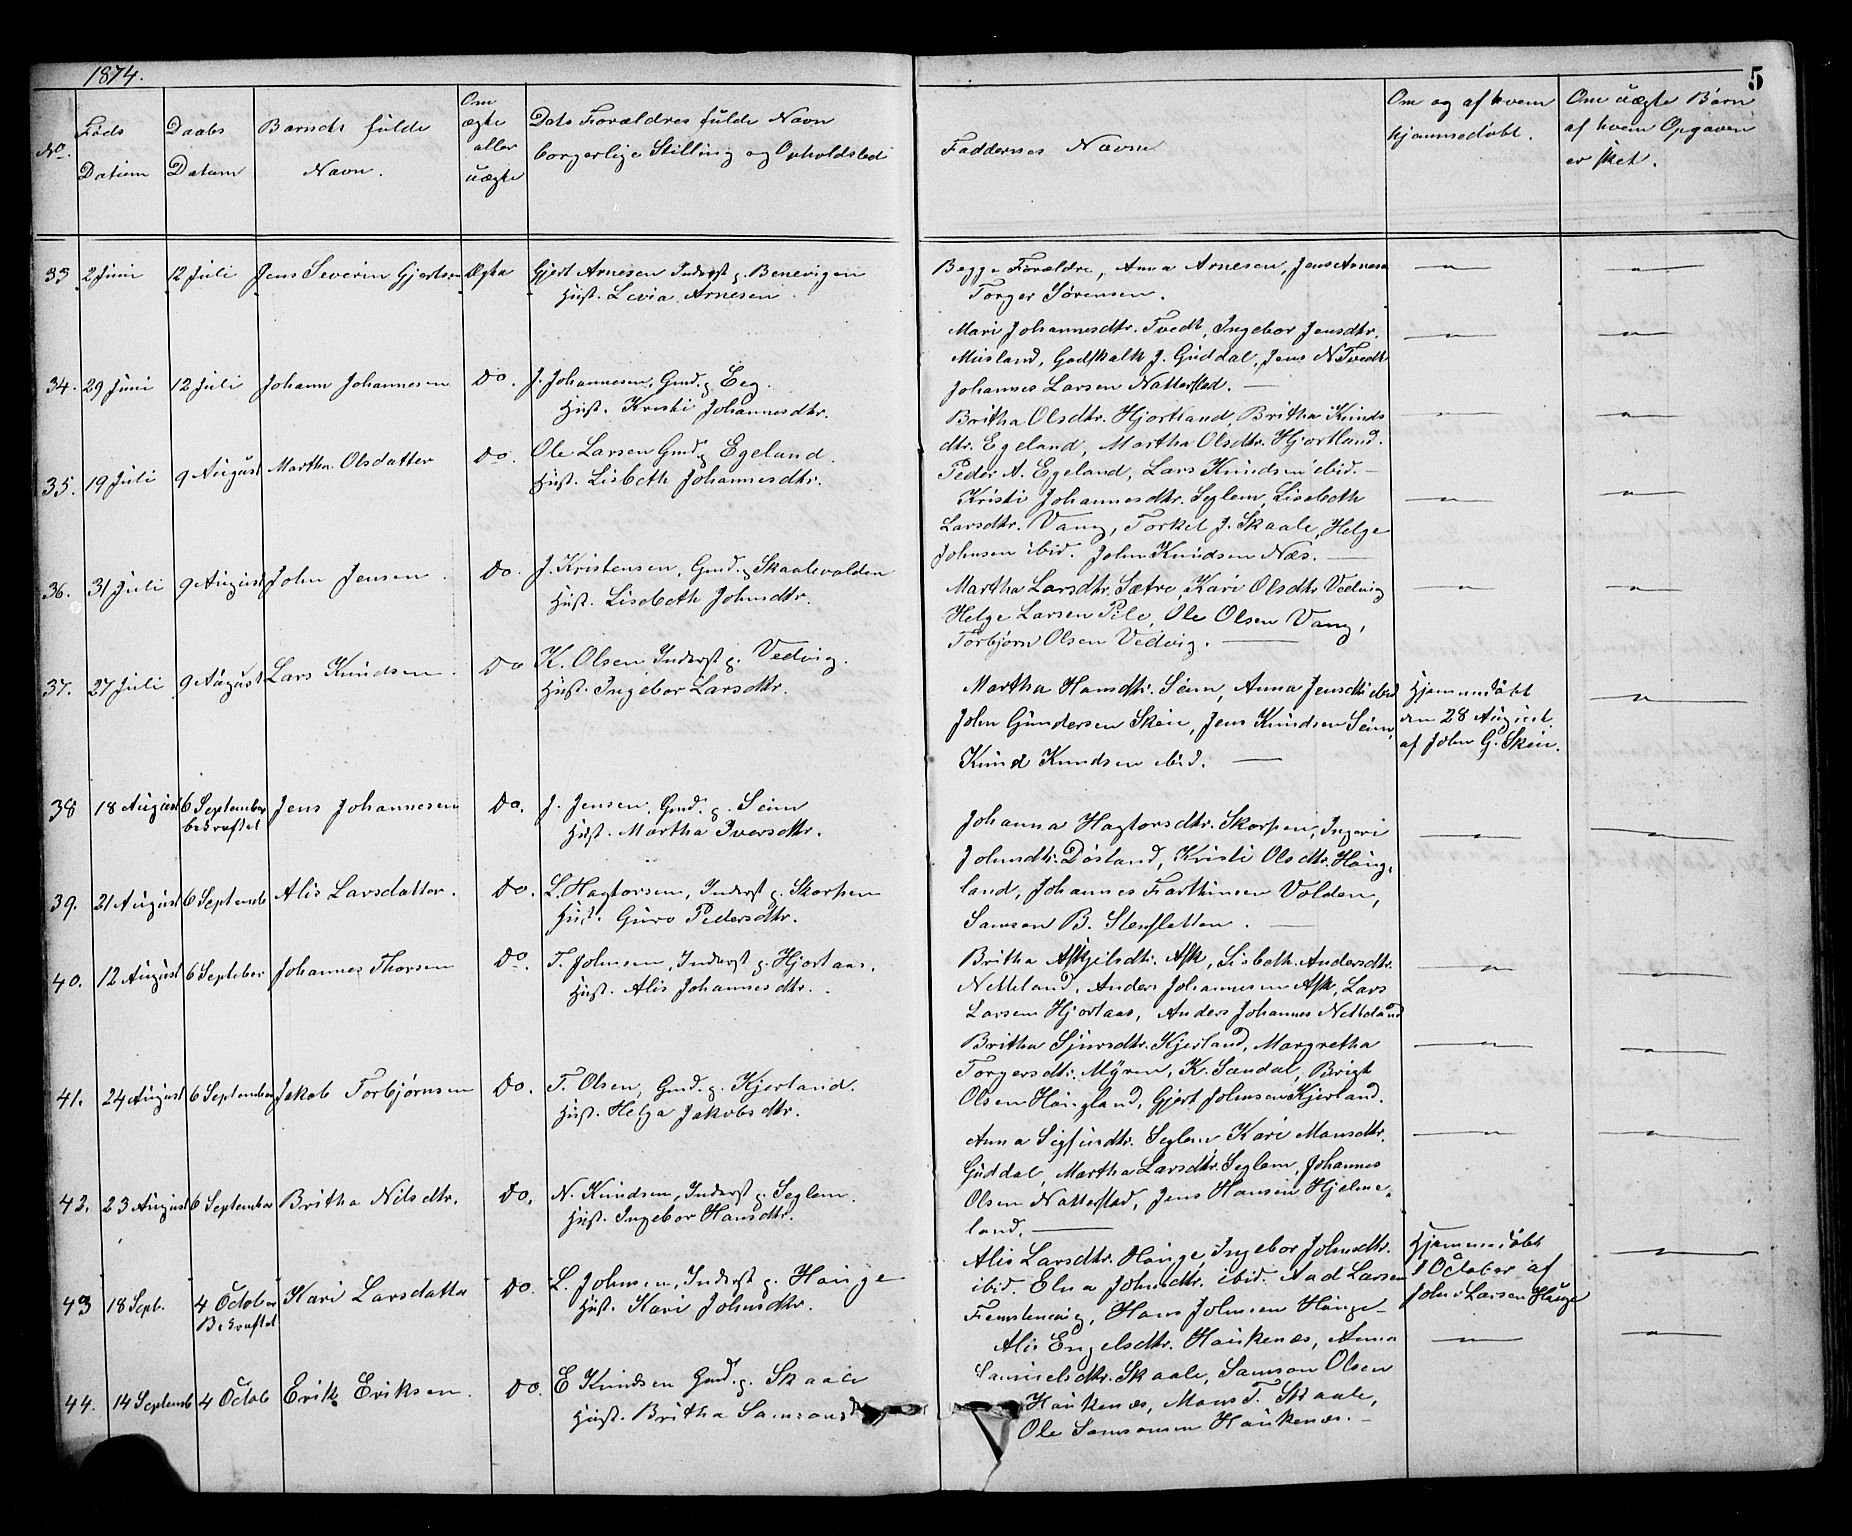 1874.
5
No.
Føds Datum
Daabs Datum
Barnets fulde Navn.
Om ægte eller uægte
Dets Forældres fulde Navn
borgerlige Stilling og Opholdsted
Faddernes Navne
Om og af hvem
hjemmedøbt.
Om uægte Børn
af hvem Opgaven
er sket.
33 2 Juni 12 Juli Jens Severin Gjertsen Ægte Gjert Arnesen Inderst p. Benevigen
Hust. Lovia Arnesen.
Begge Forældre, Anna Arnesen, Jens Arnesen
Torger Sørensen.
34. 29 Juni 12 Juli Johann Johannesen Do. J. Johannesen, Gmd. p. Eeg.
Hust. Kristi Johannesdtr.
Mari Johannesdtr. Tvedt, Ingebor Jensdtr.
Musland, Godskalk J. Guddal, Jens N Tvedt
Johannes Larsen Natterstad. —
35. 19 Juli 9 August Martha Olsdatter Do. Ole Larsen Gmd. p. Egeland.
Hust. Lisbeth Johannesdtr.
Britha Olsdtr. Hjortland, Britha Knuds
dtr. Egeland, Martha Olsdtr. Hjortland.
Peder A. Egeland, Lars Knudsen ibid. —
36. 31 Juli 9 August John Jensen. Do. J. Kristensen, Gmd. p. Skaalevolden
Hust. Lisebeth Johnsdtr.
Kristi Johannesdtr. Seglem, Lisebeth
Larsdtr. Vang, Torkel J. Skaale, Helge
Johnsen ibid. John Knudsen Næs. —
37. 27 Juli 9 August Lars Knudsen. Do K. Olsen, Inderst p. Vedvig.
Hust. Ingebor Larsdtr.
Martha Larsdtr. Sætre, Kari Olsdtr. Vedvig
Helge Larsen Pile, Ole Olsen Vang,
Torbjørn Olsen Vedvig. —
38 18 August 6 September Jens Johannesen Do. J. Jensen, Gmd. p. Seim
bekræftet
Hust. Martha Iversdtr.
Martha Hansdtr. Seim, Anna Jensdtr. ibid
John Gundersen Skeie, Jens Knudsen Seim,
Knud Knudsen ibid. —
Hjemmedøbt
den 28 August.
af John G. Skeie.
39. 21 August 6 Septemb Alis Larsdatter. Do. L. Hagtorsen, Inderst p. Skorpen
Hust. Guro Pedersdtr.
Johanna Hagtorsdtr. Skorpen, Ingeri
Johnsdtr. Døsland, Kristi Olsdtr. Haug,
land, Johannes Farthinsen Volden,
Samson B. Slensletten. —
40. 12 August 6 Septeber Johannes Thorsen Do. T. Johnsen, Inderst p. Hjortaas.
Hust. Alis Johannesdtr.
Britha Askjelsdtr. Ask, Lisbeth Andersdtr.
Netteland, Anders Johannesen Ask, Lars
Larsen Hjortaas, Anders Johannes Netteland
41. 24 August 6 September Jakob Torbjørnsen Do. T. Olsen, Gmd. p. Kjerland.
Hust. Helga Jakobsdtr.
Britha Sjursdtr. Kjerland, Margretha
Torgersdtr. Myren, K. Sandal, Brigt
Olsen Haugland, Gjert Johnsen Kjerland.
42. 23 August 6 September Britha Nilsdtr. Do. N. Knudsen, Inderst p. Seglem.
Hust. Ingebor Hansdtr.
Anna Sigfusdtr. Seglem Kari Monsdtr.
Guddal, Martha Larsdtr. Seglem, Johannes
Olsen Natterstad, Jens Hansen Hjelme,
land. —
43 18 Sept. 4 October Kari Larsdatter Do. L. Johnsen, Inderst p. Hauge
Bekræftet
Hust. Kari Johnsdtr.
Alis Larsdtr. Hauge, Ingebor Johnsdtr.
ibid. Elna Johnsdtr. ibid. Aad Larsen
Femstenevig, Hans Johnsen Hauge —
Hjemmedøbt
1 October af
John Larsen Hauge
44. 14 Septemb 4 Octob Erik Eriksen. Do. E Knudsen Gmd. p. Skaale
Hust. Britha Samsons
Alis Engelsdtr. Haukenæs, Anna
Samuelsdtr. Skaale, Samson Olsen
Haukenæs, Mons T. Skaale,
Ole Samsonsen Haukenæs. —